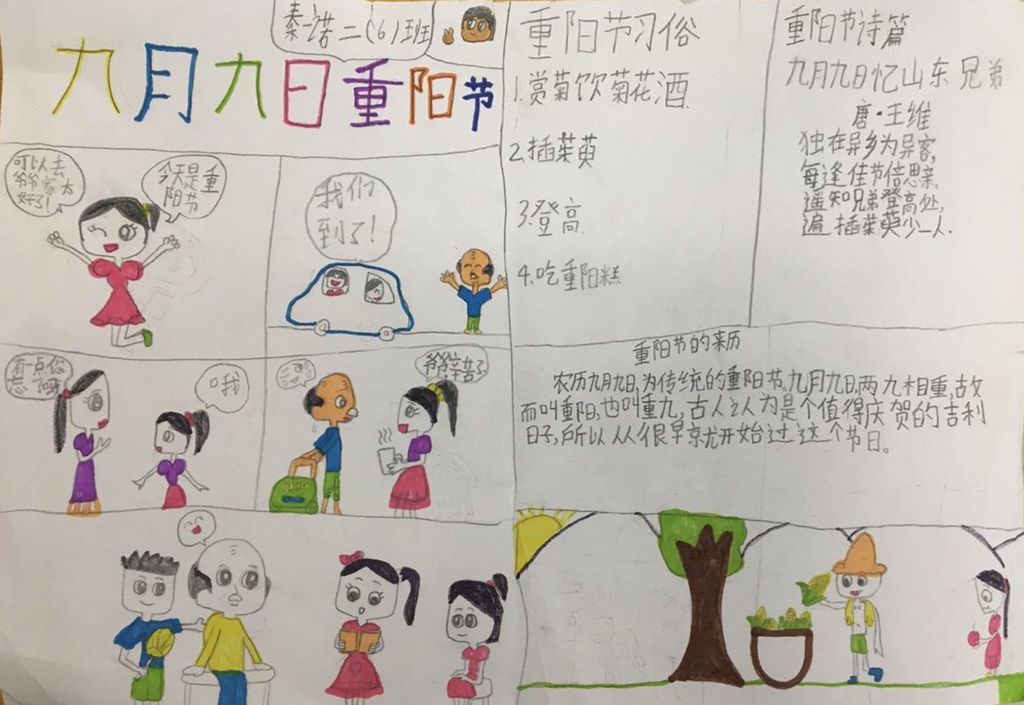 秦一诺二(6)班
九月九日重阳节
可以去
爷爷家太
好了!
今天是重
阳节
我们
到了!
有一点你
忘了吗
哦
爷爷辛苦了
重阳节习俗
1.赏菊饮菊花酒.
2.插茱萸
3.登高
4.吃重阳糕
重阳节诗篇
九月九日忆山东兄弟
唐·王维
独在异乡为异客,
每逢佳节倍思亲,
遥知兄弟登高处,
遍插茱萸少一人.
重阳节的来历
农历九月九日,为传统的重阳节,九月九日,两九相重,故
而叫重阳,也叫重九,古人认为是个值得庆贺的吉利
日子,所以从很早就开始过这个节日。